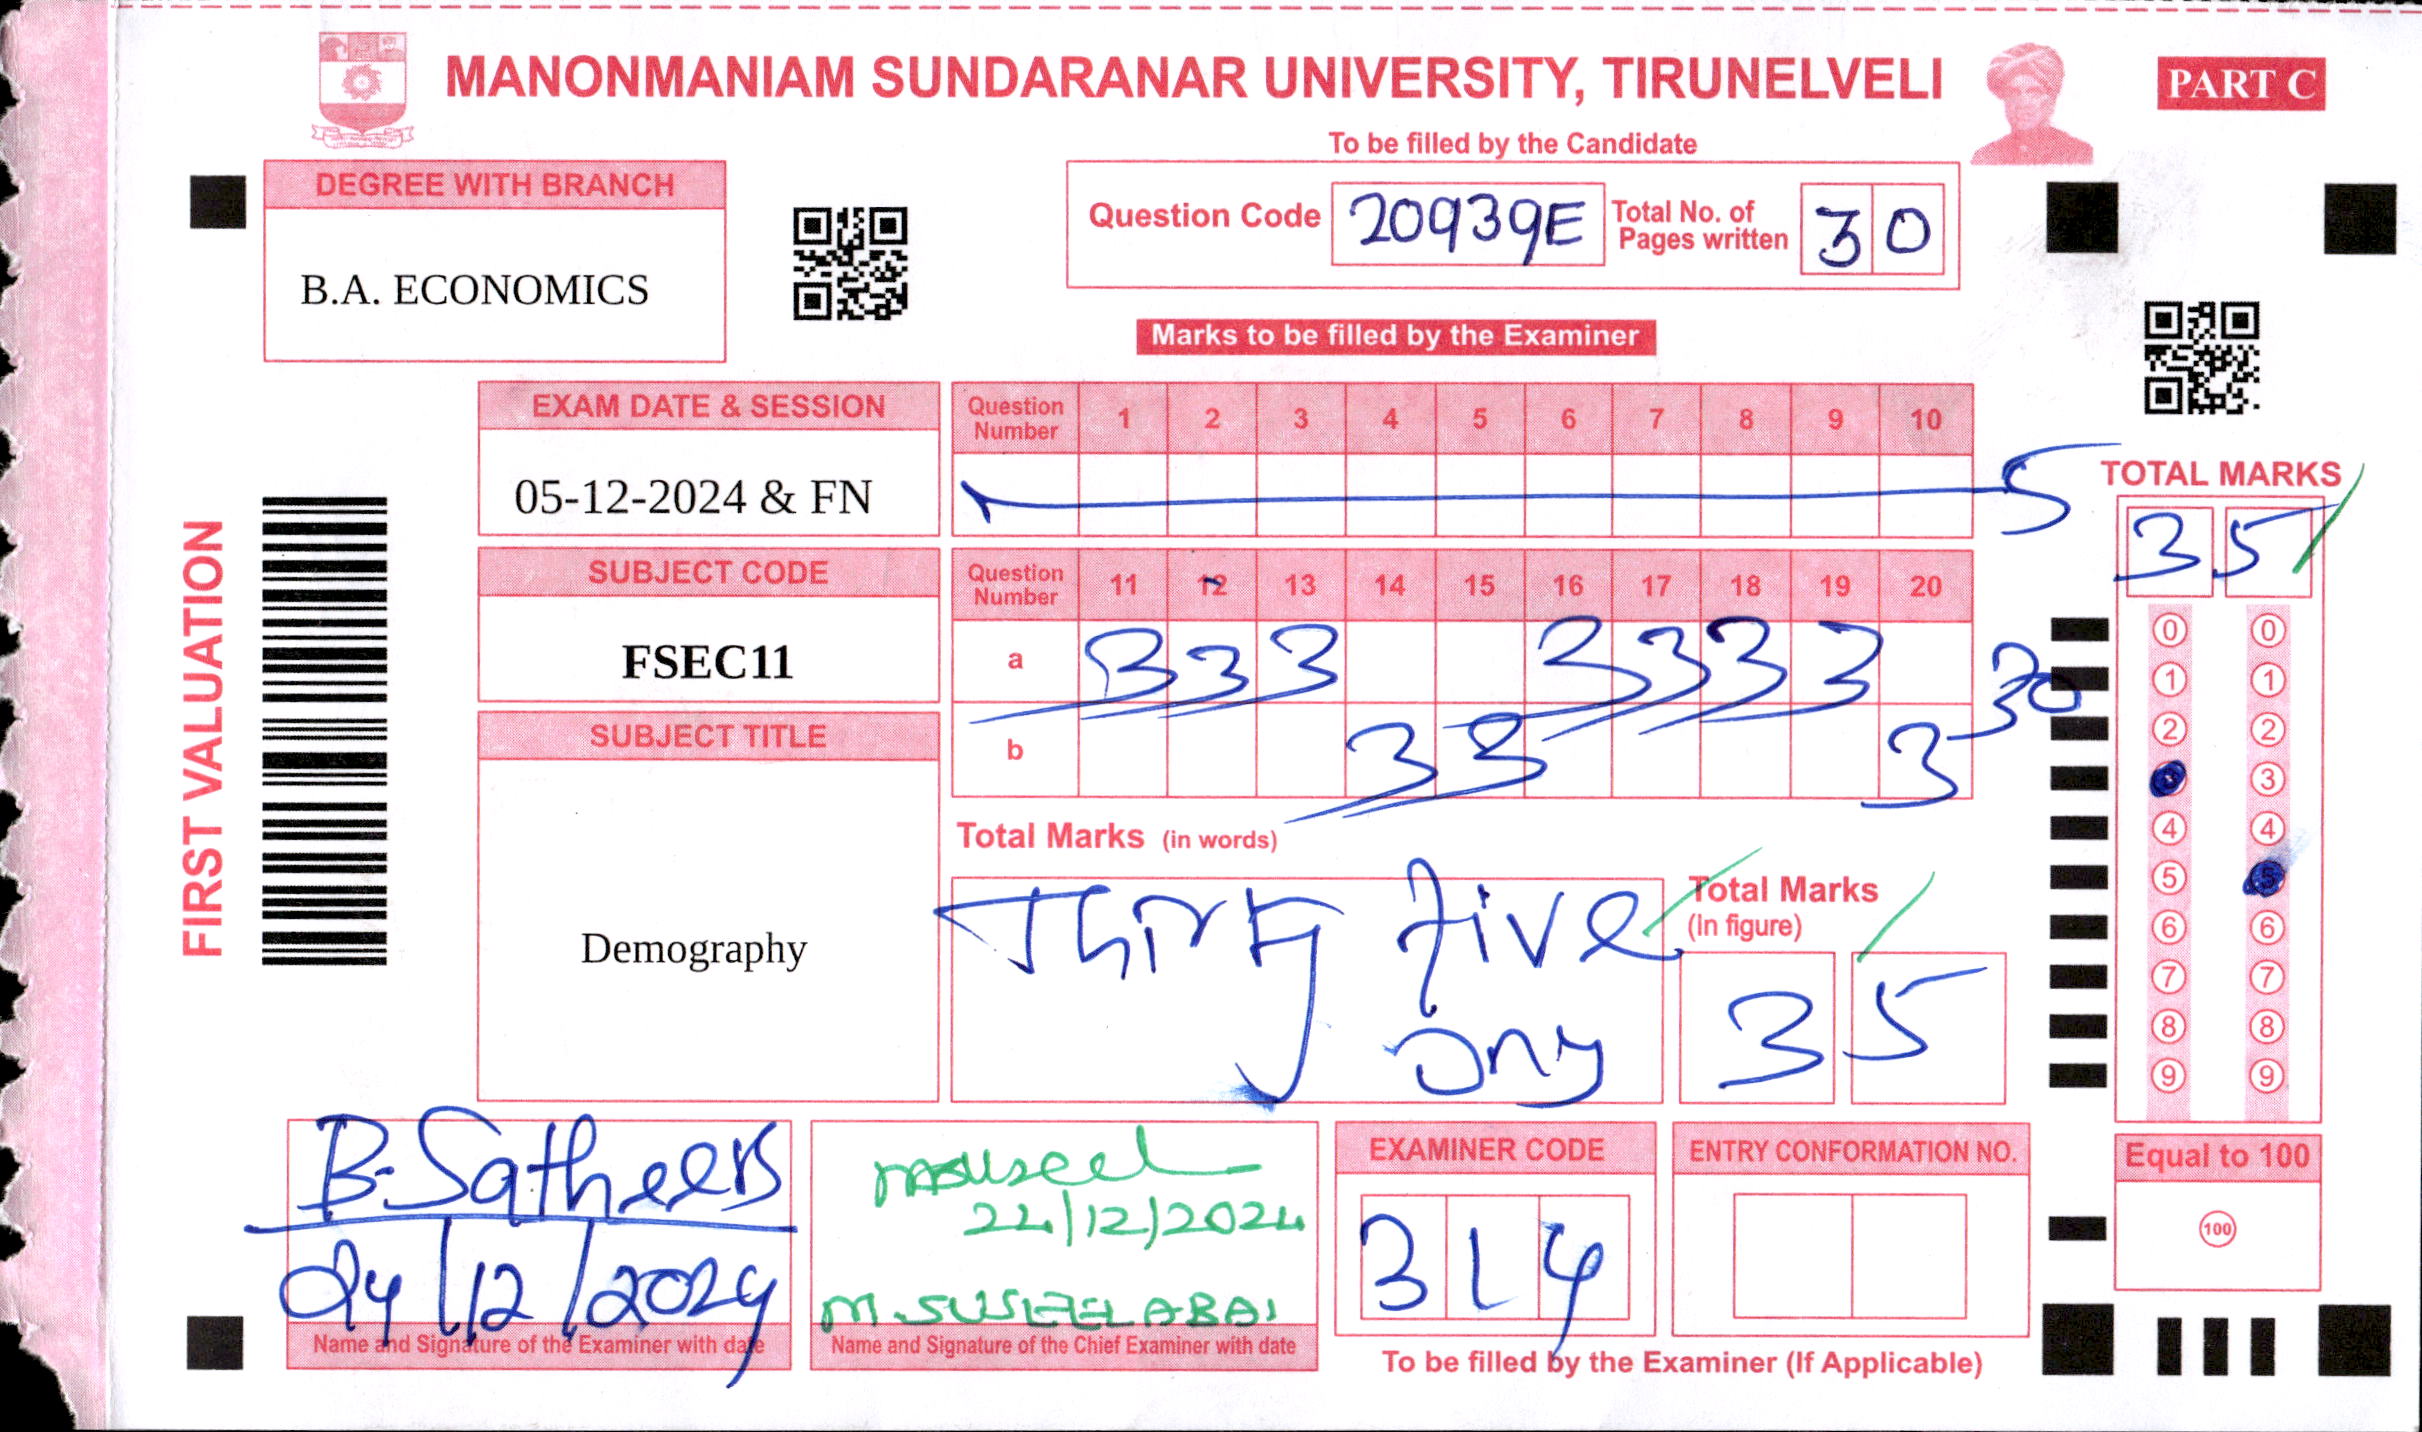 MANONMANIAM SUNDARANAR UNIVERSITY, TIRUNELVELI
PART C
To be filled by the Candidate
DEGREE WITH BRANCH
B.A. ECONOMICS
Question Code 20939E Total No. of Pages written 30
Marks to be filled by the Examiner
EXAM DATE & SESSION
05-12-2024 & FN
Question Number 1 2 3 4 5 6 7 8 9 10
5
SUBJECT CODE
FSEC11
Question Number 11 12 13 14 15 16 17 18 19 20
a 3 3 3 3 3 3 3
30
b 3 3 3
SUBJECT TITLE
Demography
FIRST VALUATION
Total Marks (in words)
Thirty five
Total Marks (in figure)
35
TOTAL MARKS
35
0 0
1 1
2 2
3
4 4
5 5
6 6
7 7
8 8
9 9
Equal to 100
100
B. Sathees
24/12/2024
Name and Signature of the Examiner with date
24/12/2024
M. SUSEELABAI
Name and Signature of the Chief Examiner with date
EXAMINER CODE
314
ENTRY CONFORMATION NO.
To be filled by the Examiner (If Applicable)